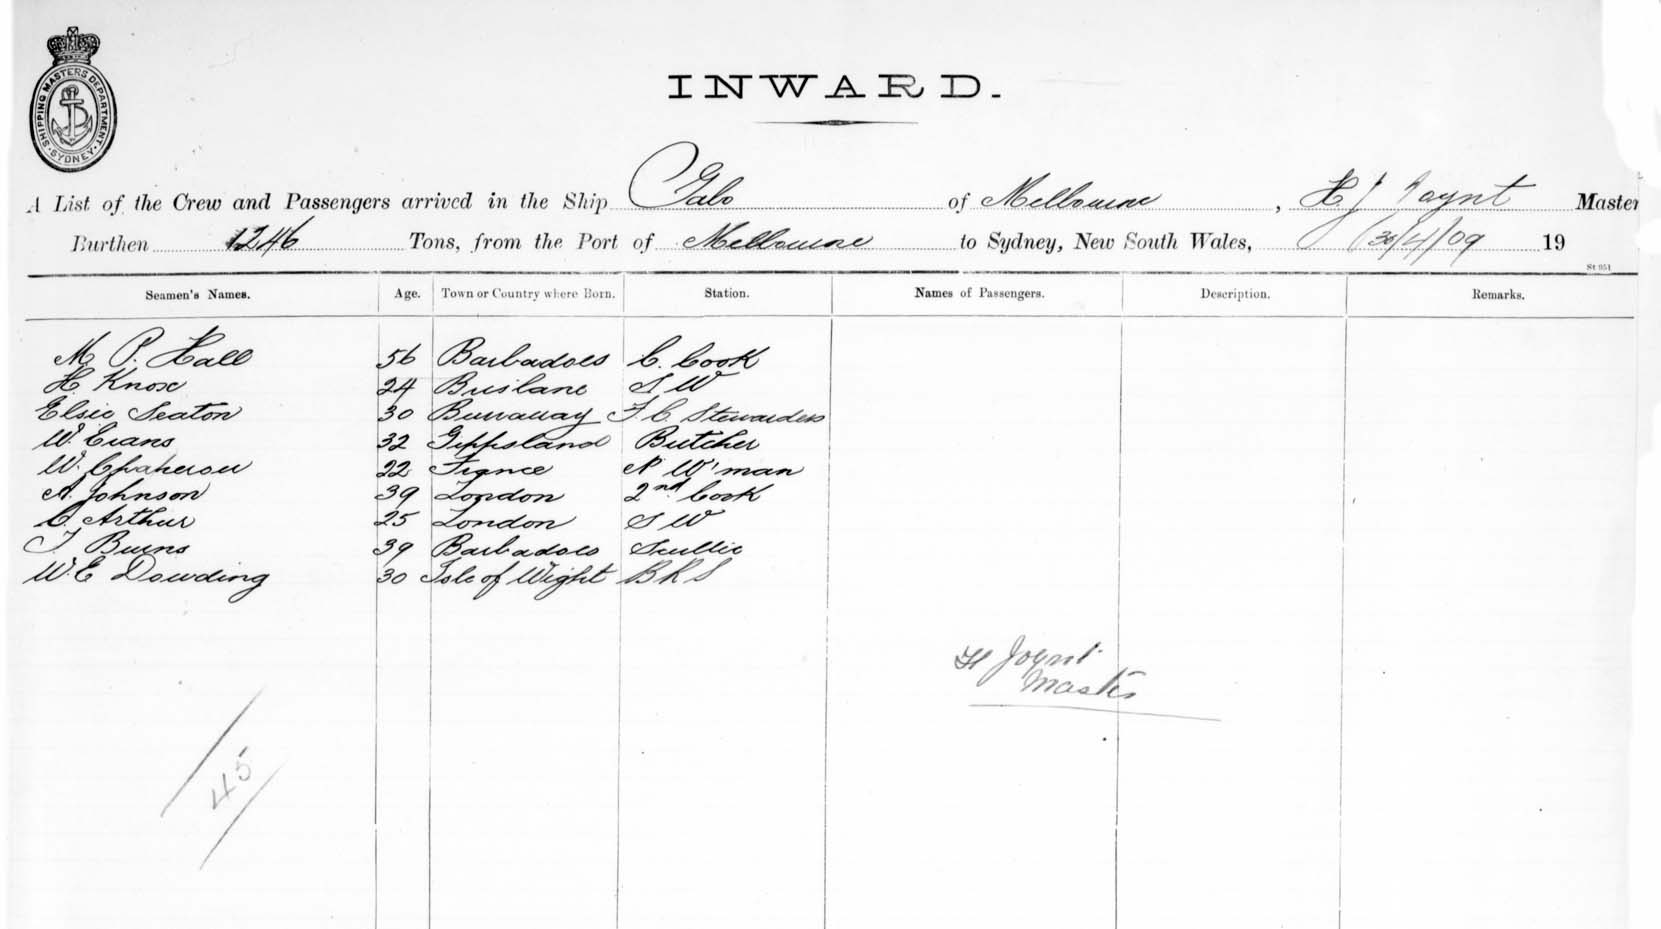 SHIPPING MASTERS DEPARTMENT · SYDNEY ·
INWARD.
A List of the Crew and Passengers arrived in the Ship Gabo of Melbourne, H J Joynt Master
Burthen 1246 Tons, from the Port of Melbourne to Sydney, New South Wales, 30/4/09 19
St 951
Seamen's Names. Age. Town or Country where Born. Station. Names of Passengers. Description. Remarks.
M. P. Hall 56 Barbadoes C. Cook
H. Knox 24 Brisbane S W
Elsie Seaton 30 F C Stewardess
W. Evans 32 Gippsland Butcher
W. 22 France N W'man
A. Johnson 39 London 2nd Cook
C. Arthur 25 London S W
T Burns 39 Barbadoes Scullie
W. E Dowding 30 Isle of Wight B R S
H Joynt
Master
45